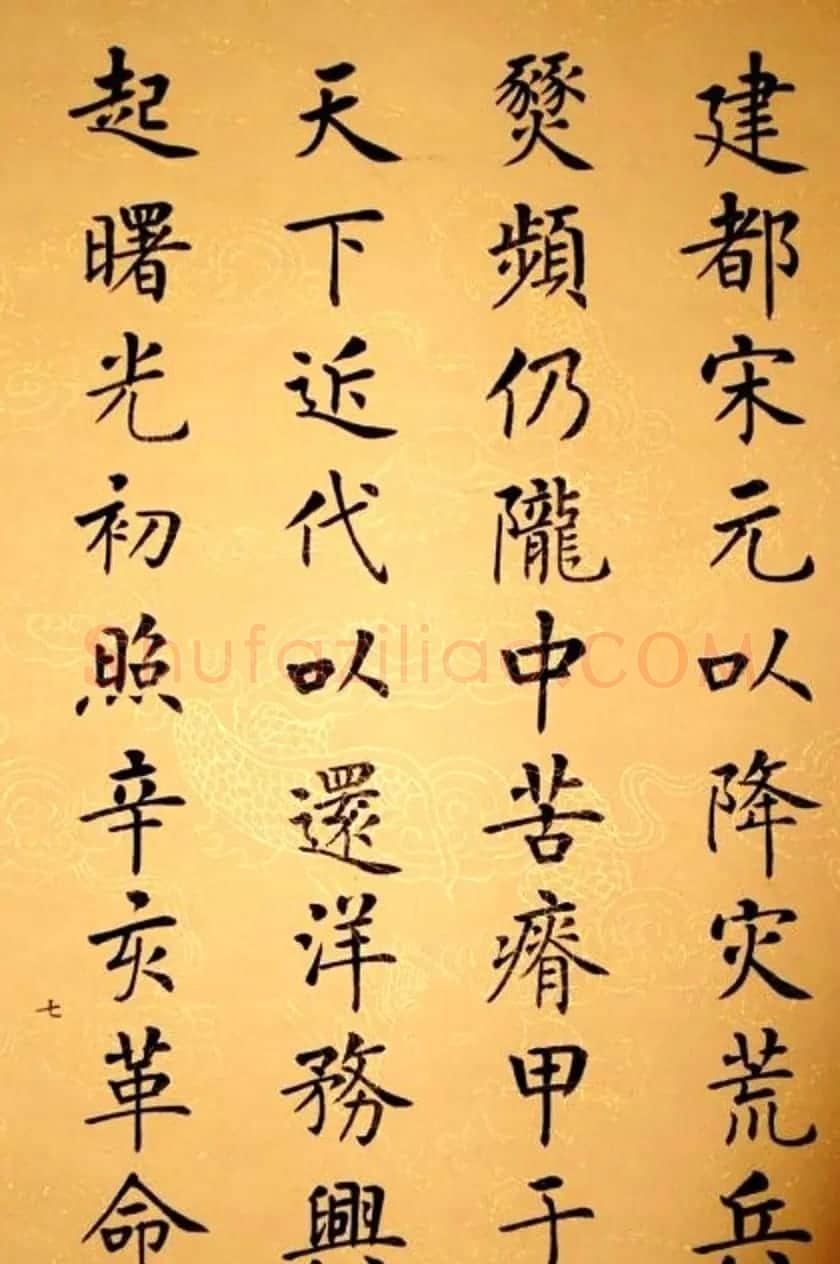 建都宋元以降灾荒兵
燹頻仍隴中苦瘠甲于
天下近代以還洋務興
起曙光初照辛亥革命
七
Shufaziliao.COM